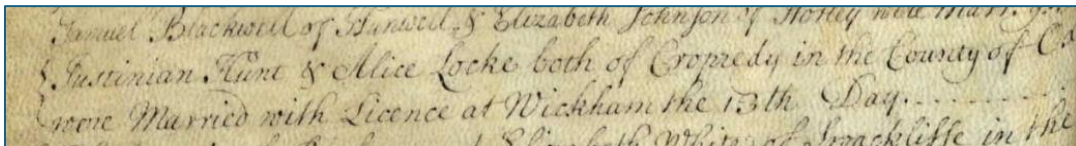 Samuel Blackwell of Hanwell & Elizabeth Johnson of Horley were Marr
Justinian Hunt & Alice Locke both of Cropredy in the County of
were Married with Licence at Wickham the 13th Day
Elizabeth White of Swackliffe in the